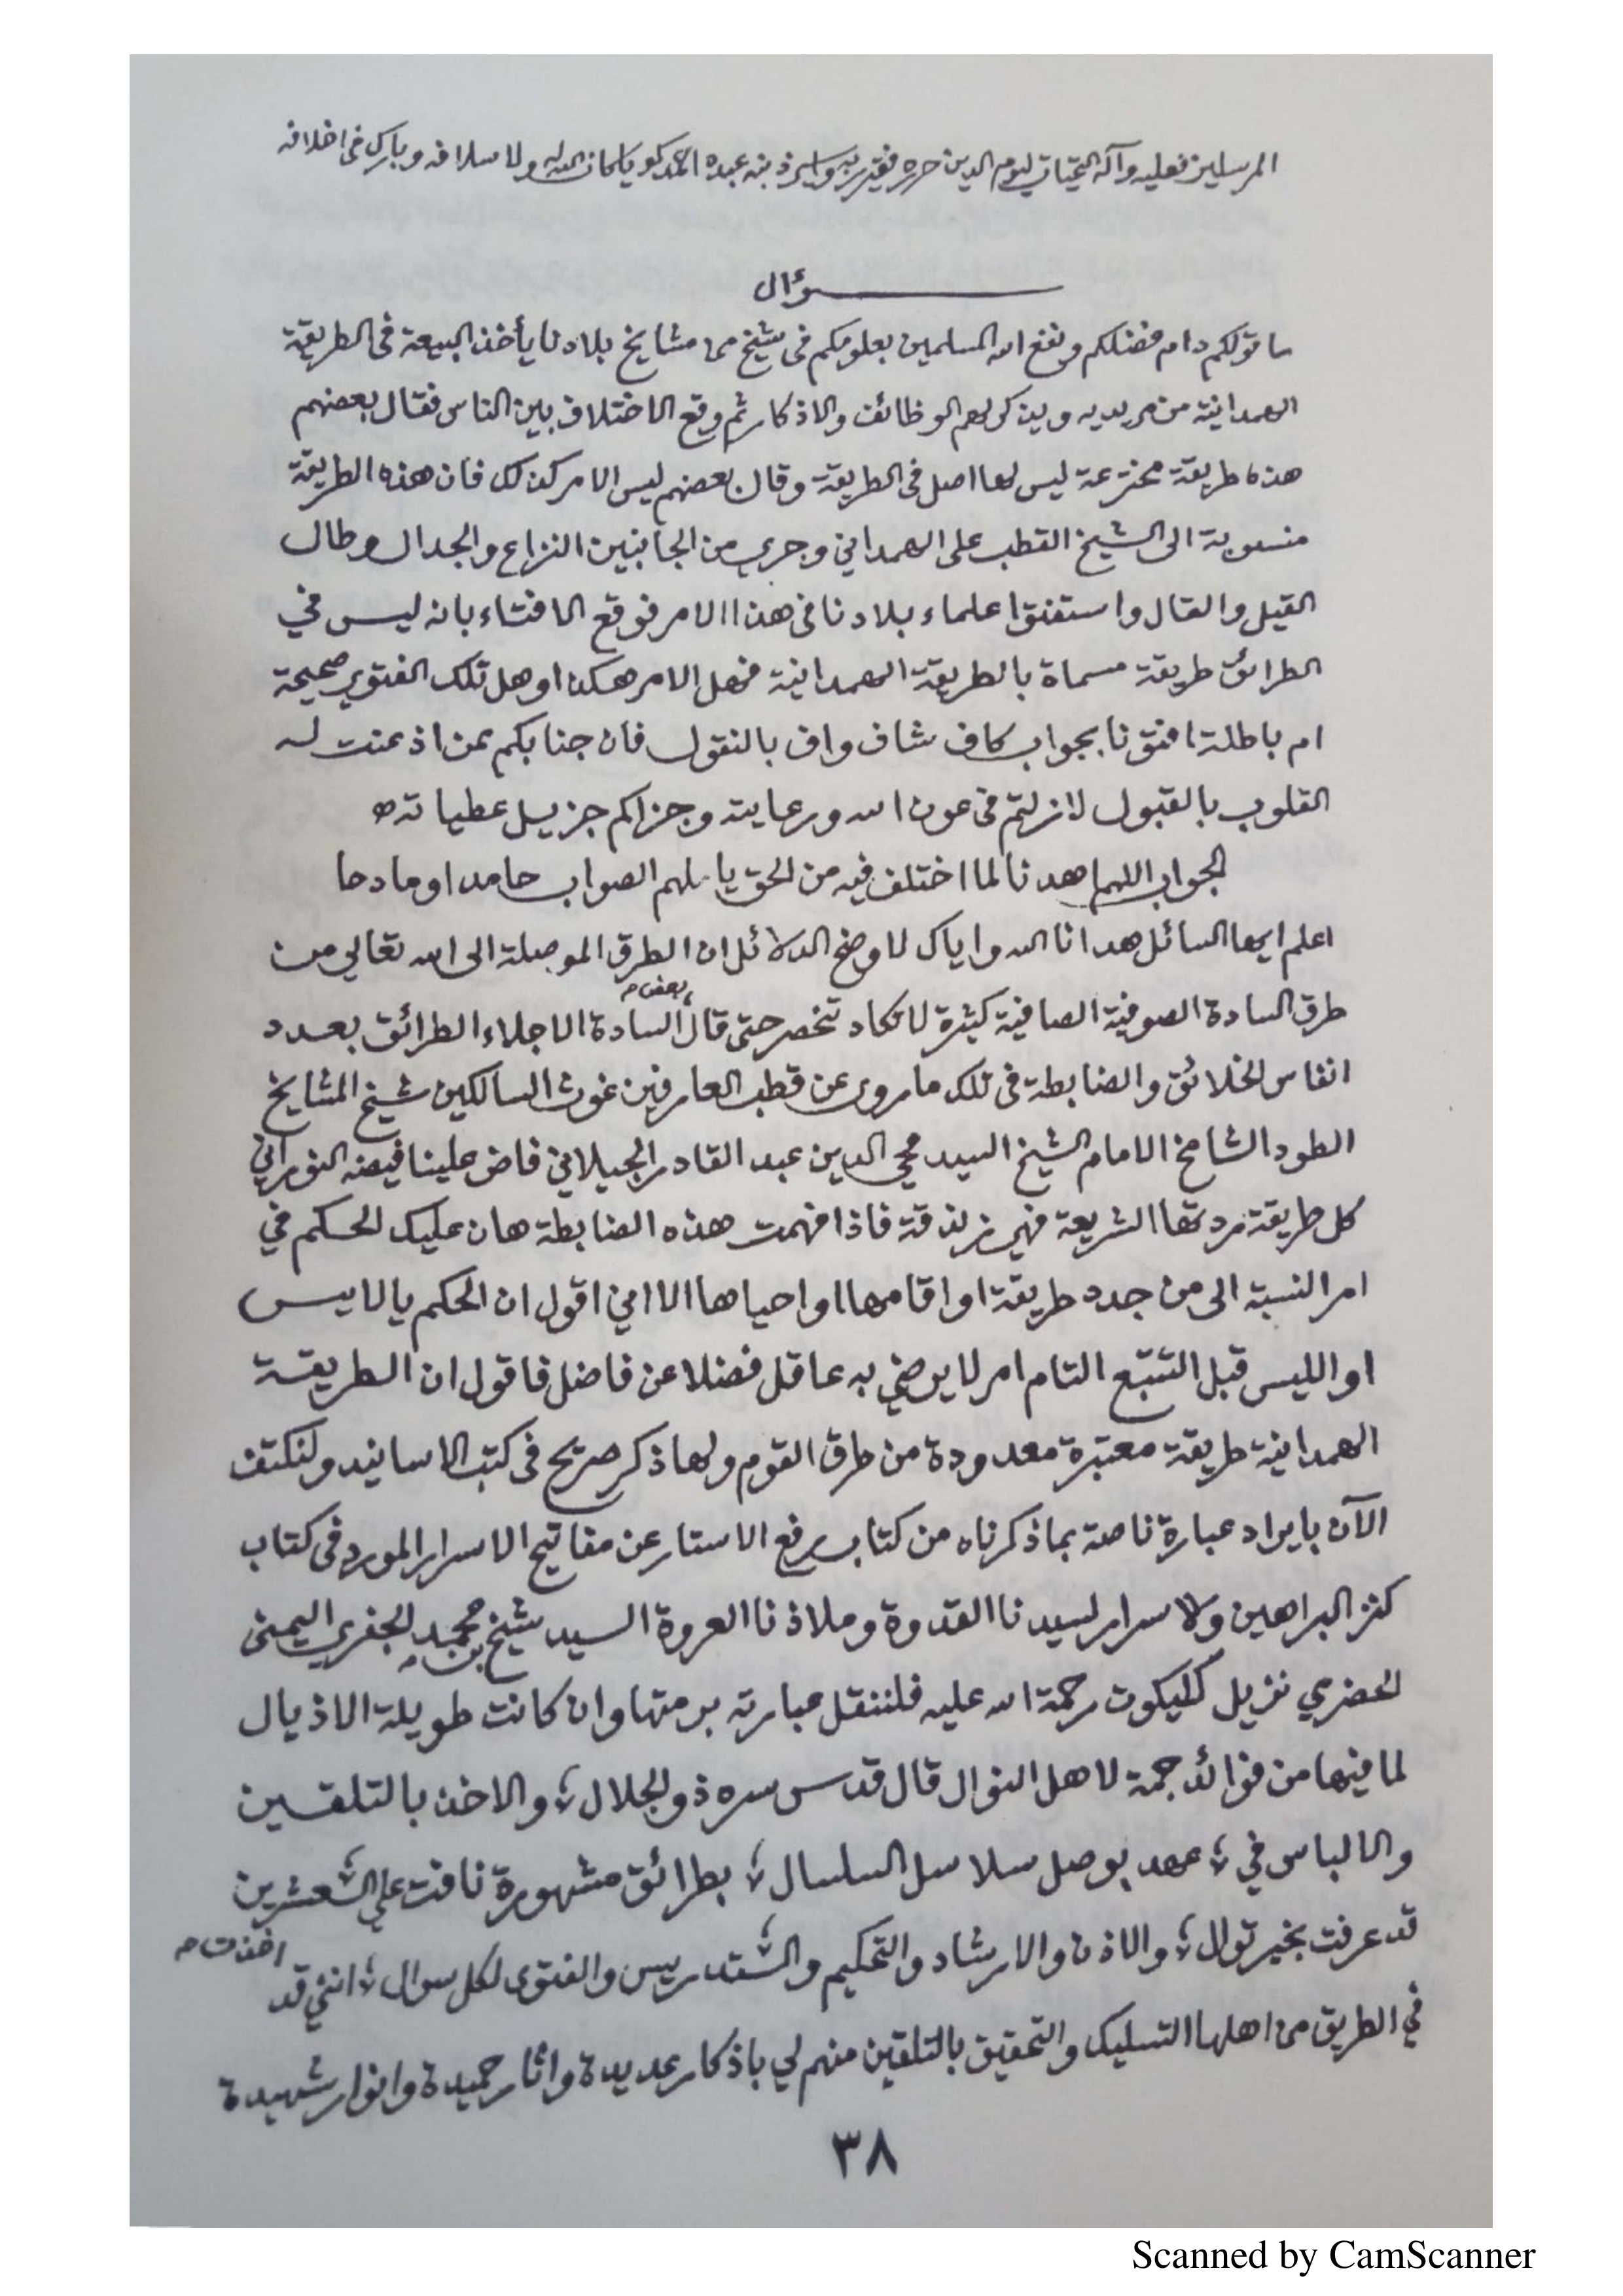 المرسلين فعليه وآله التحيات ليوم الدين حرره فقير ربه واسير ذنبه عبده احمد كويا كان الله له ولاسلافه وبارك في اخلافه
سؤال
ما قولكم دام فضلكم ونفع الله المسلمين بعلومكم في شيخ من مشايخ بلادنا يأخذ البيعة في الطريقة
الهمدانية من مريديه ويذكر لهم الوظائف والاذكار ثم وقع الاختلاف بين الناس فقال بعضهم
هذه طريقة مخترعة ليس لها اصل في الطريقة وقال بعضهم ليس الامر كذلك فان هذه الطريقة
منسوبة الى الشيخ القطب على الهمداني وجرى من الجانبين النزاع والجدال وطال
القيل والقال واستفتوا علماء بلادنا في هذا الامر فوقع الافتاء بانه ليس في
الطرائق طريقة مسماة بالطريقة الهمدانية فهل الامر هكذا وهل تلك الفتوى صحيحة
ام باطلة افتونا بجواب كاف شاف واف بالنقول فان جنابكم ممن اذعنت له
القلوب بالقبول لازلتم في عون الله ورعايته وجزاكم جزيل عطياته
الجواب اللهم اهدنا لما اختلف فيه من الحق يا ملهم الصواب حامدا ومادحا
اعلم ايها السائل هدانا الله واياك لاوضح الدلائل ان الطرق الموصلة الى الله تعالى من
طرق السادة الصوفية الصافية كثيرة لا تكاد تنحصر حتى قال بعض السادة الاجلاء الطرائق بعدد
انفاس الخلائق والضابطة في تلك ما روى عن قطب العارفين غوث السالكين شيخ المشايخ
الطود الشامخ الامام الشيخ السيد محي الدين عبد القادر الجيلاني فاض علينا فيضه النوراني
كل طريقة ردتها الشريعة فهي زندقة فاذا فهمت هذه الضابطة هان عليك الحكم في
امر النسبة الى من جدد طريقة او اقامها او احياها الا اني اقول ان الحكم بالايس
او الليس قبل التتبع التام امر لا يرضي به عاقل فضلا عن فاضل فاقول ان الطريقة
الهمدانية طريقة معتبرة معدودة من طرق القوم ولها ذكر صريح في كتب الاسانيد ولنكتف
الآن بايراد عبارة ناصة بماذكرناه من كتاب رفع الاستار عن مفاتيح الاسرار المورد في كتاب
كنز البراهين والاسرار لسيدنا القدوة وملاذنا العروة السيد شيخ بن محمد الجفري اليمني
الحضرمي نزيل كليكوت رحمة الله عليه فلننقل عبارته برمتها وان كانت طويلة الاذيال
لما فيها من فوائد جمة لاهل النوال قال قدس سره ذو الجلال ؛ والاخذ بالتلقين
والالباس في ؛ عهد يوصل سلاسل السلسال ؛ بطرائق مشهورة نافت على العشرين
قد عرفت بخير توال ؛ والاذن والارشاد والتحكيم والتدريس والفتوى لكل سوال ؛ انني قد اخذت
في الطريق من اهلها التسليك والتحقيق بالتلقين منهم لي باذكار عديدة واثار حميدة وانوار شهيدة
٣٨
Scanned by CamScanner